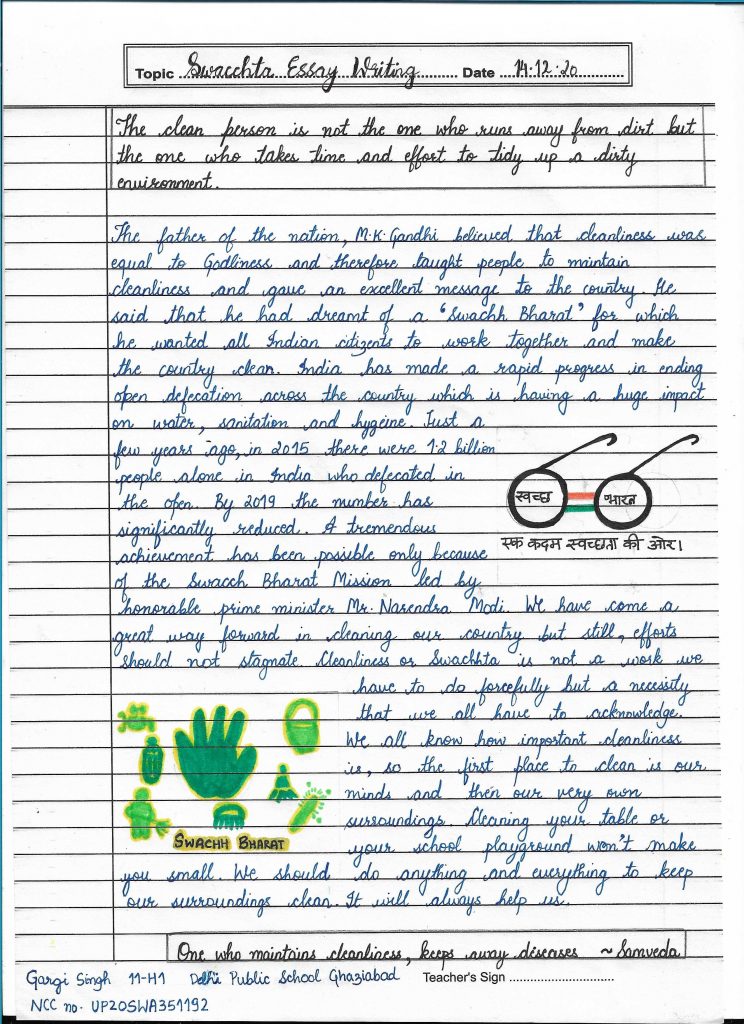 Topic Swacchta Essay Writing Date 14.12.20
The clean person is not the one who runs away from dirt but
the one who takes time and effort to tidy up a dirty
environment.
The father of the nation, M.K. Gandhi believed that cleanliness was
equal to Godliness and therefore taught people to maintain
cleanliness and gave an excellent message to the country. He
said that he had dreamt of a 'Swachh Bharat' for which
he wanted all Indian citizents to work together and make
the country clean. India has made a rapid progress in ending
open defecation across the country which is having a huge impact
on water, sanitation and hygeine. Just a
few years ago, in 2015 there were 1.2 billion
people alone in India who defecated in
the open. By 2019 the number has
significantly reduced. A tremendous
achievement has been possible only because
of the Swacch Bharat Mission led by
honorable prime minister Mr. Narendra Modi. We have come a
great way forward in cleaning our country but still, efforts
should not stagnate. Cleanliness or Swachhta is not a work we
have to do forcefully but a necessity
that we all have to acknowledge.
We all know how important cleanliness
is, so the first place to clean is our
minds and then our very own
surroundings. Cleaning your table or
your school playground won't make
you small. We should do anything and everything to keep
our surroundings clean. It will always help us.
स्वच्छ भारत
एक कदम स्वच्छता की ओर।
SWACHH BHARAT
One who maintains cleanliness, keeps away diseases ~ Samveda
Gargi Singh 11-H1 Delhi Public School Ghaziabad Teacher's Sign
NCC no. UP20SWA351192